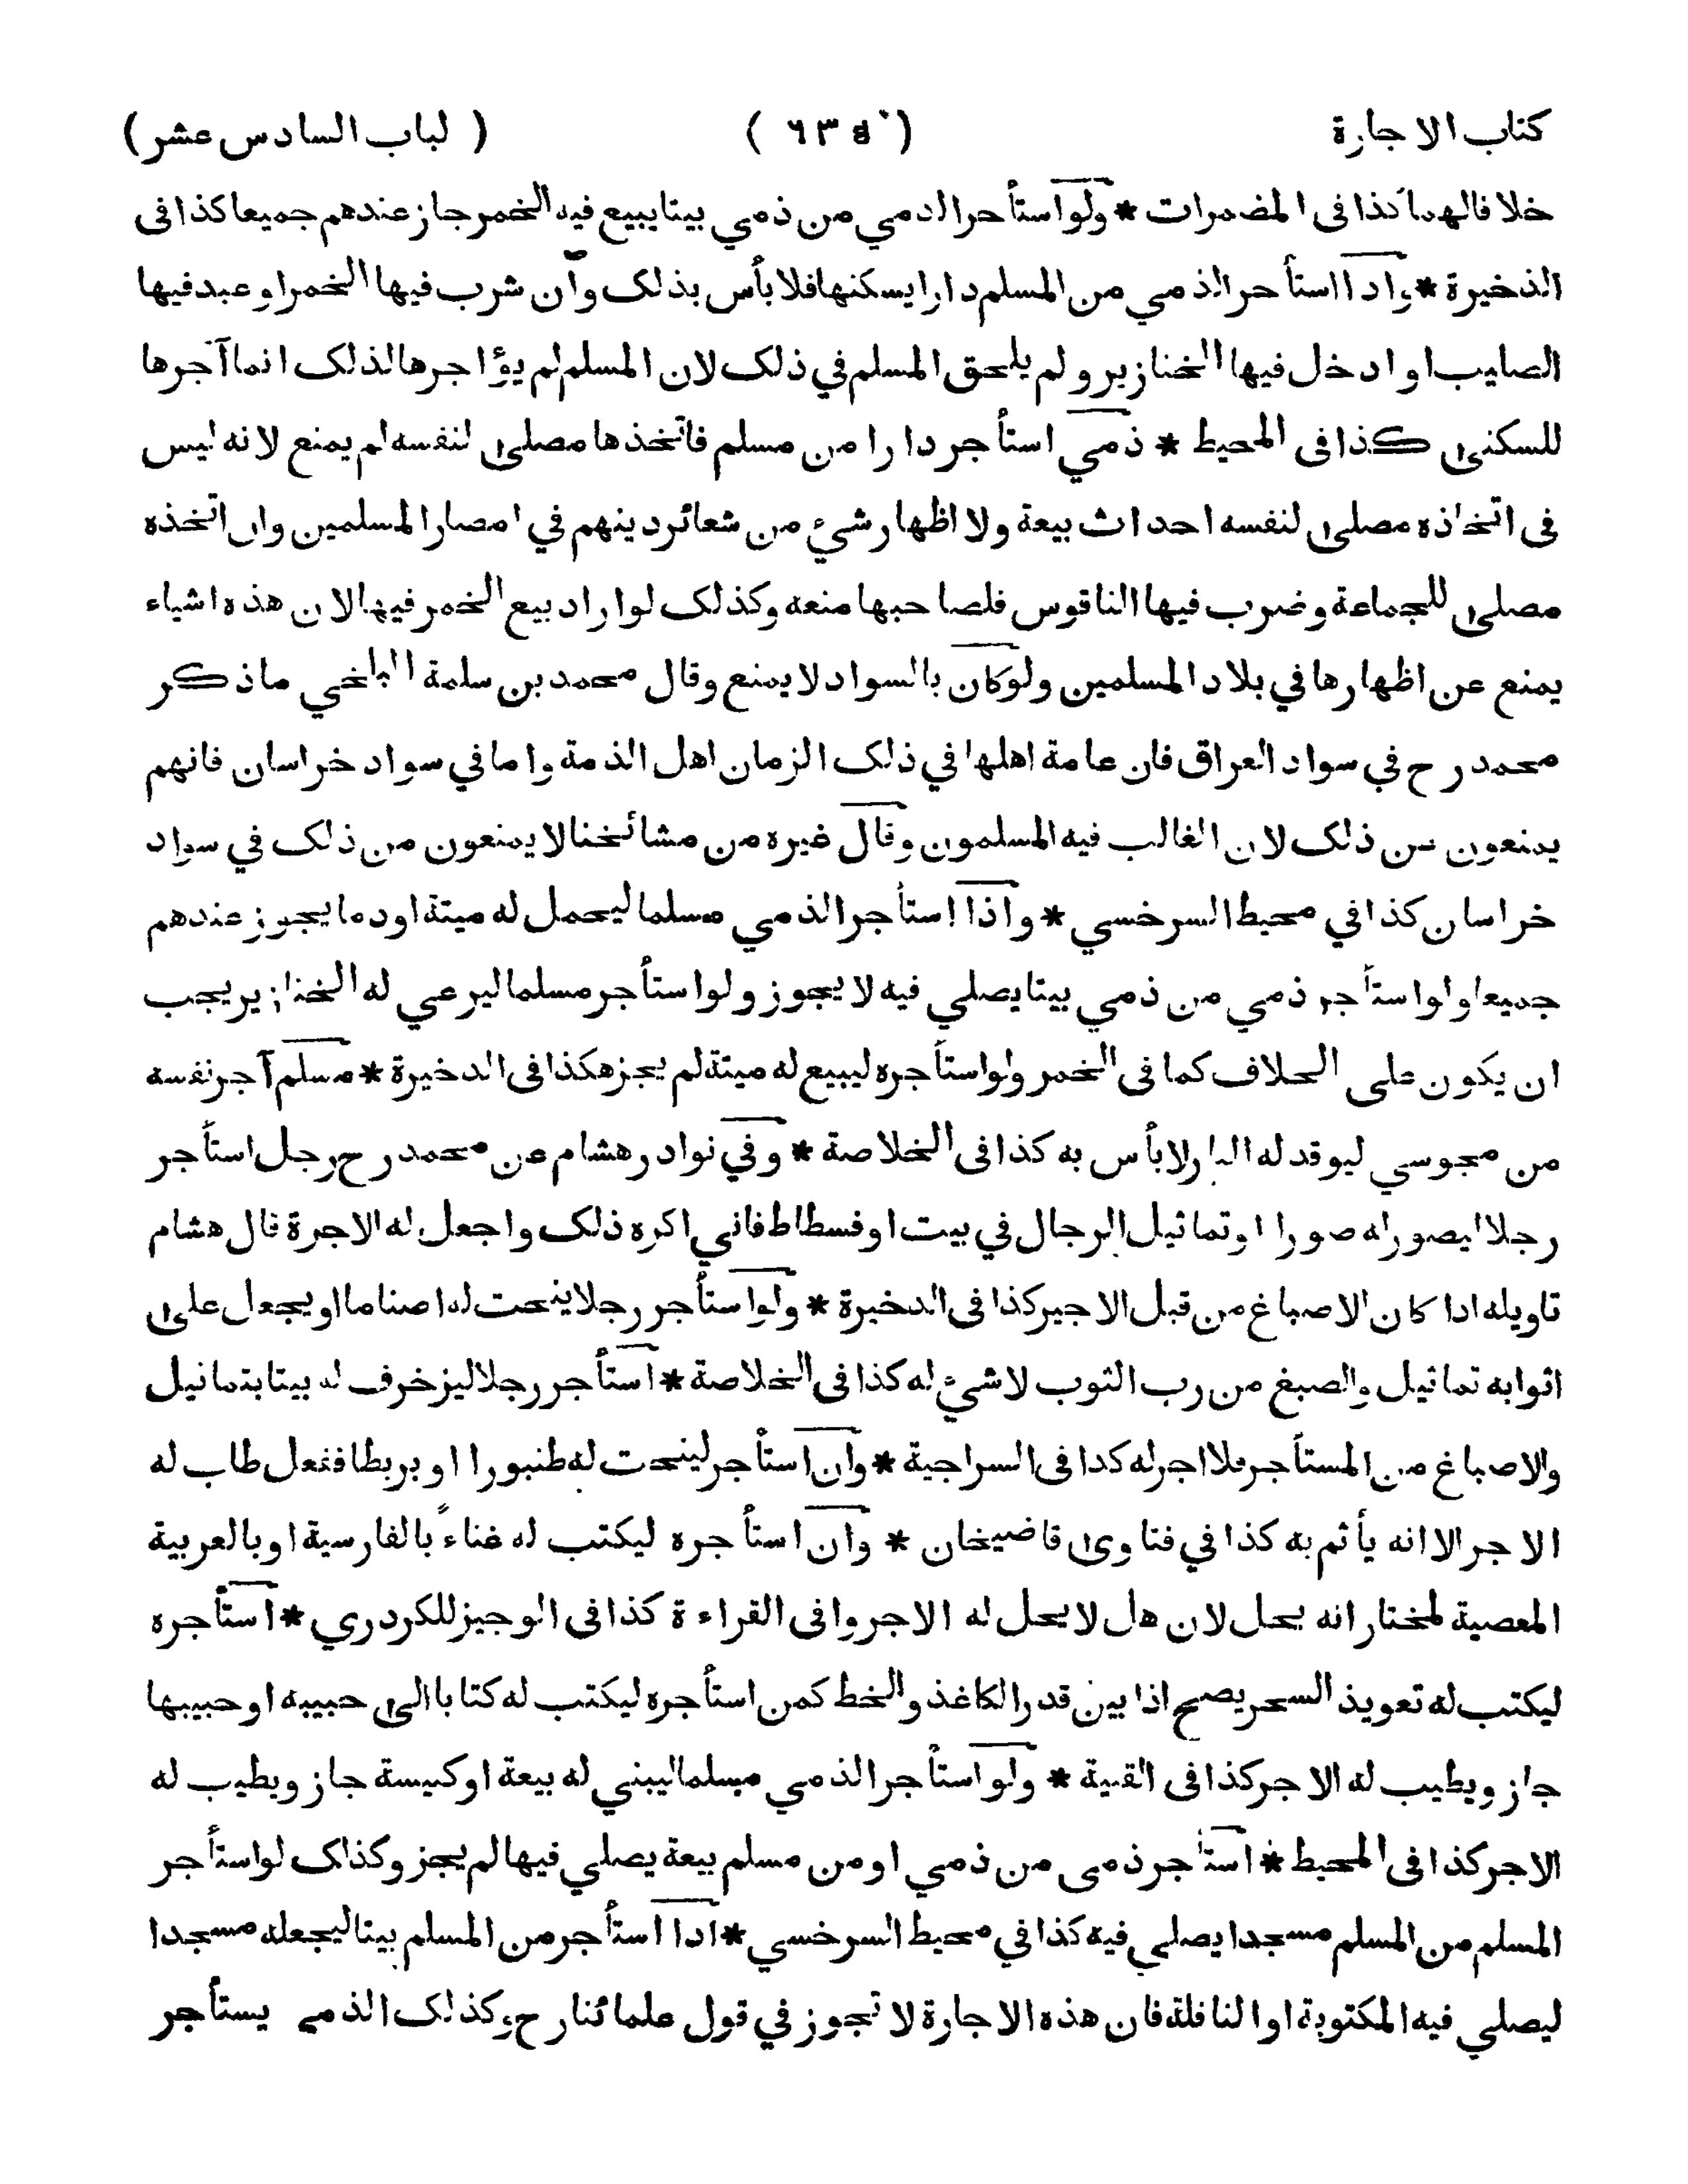 كتاب الاجارة ( ٦٣٥ ) ( لباب السادس عشر )
خلافالهما كذافى المضمرات * ولواستأجرالذمي من ذمي بيتايبيع فيه الخمرجازعندهم جميعاكذافى
الذخيرة * واذااستأجرالذمي من المسلم دارايسكنهافلابأس بذلك وان شرب فيهاالخمراوعبدفيها
الصليب اوادخل فيهاالخنازيرولم يلحق المسلم في ذلك لان المسلم لم يؤاجرهالذلك انماآجرها
للسكنى كذافى المحيط * ذمي استأجردارا من مسلم فاتخذهامصلى لنفسه لم يمنع لانه ليس
فى اتخاذه مصلى لنفسه احداث بيعة ولااظهارشيء من شعائردينهم في امصارالمسلمين وان اتخذه
مصلى للجماعة وضرب فيهاالناقوس فلصاحبهامنعه وكذلك لواراد بيع الخمرفيهالان هذه اشياء
يمنع عن اظهارهافي بلادالمسلمين ولوكان بالسوادلايمنع وقال محمدبن سلمة البلخي ماذكر
محمدرح في سوادالعراق فان عامة اهلهافي ذلك الزمان اهل الذمة وامافي سواد خراسان فانهم
يمنعون عن ذلك لان الغالب فيه المسلمون وقال غيره من مشائخنالايمنعون من ذلك في سواد
خراسان كذافي محيط السرخسي * واذا استأجرالذمي مسلماليحمل له ميتة اودمايجوزعندهم
جميعاولواستأجر ذمي من ذمي بيتايصلي فيه لايجوز ولواستأجرمسلماليرعي له الخنازيريجب
ان يكون على الخلاف كمافى الخمر ولواستأجره ليبيع له ميتة لم يجزهكذافى الذخيرة * مسلم آجرنفسه
من مجوسي ليوقدله النارلابأس به كذافى الخلاصة * وفي نوادرهشام عن محمدرح رجل استأجر
رجلاليصورله صورا اوتماثيل الرجال في بيت اوفسطاط فاني اكره ذلك واجعل له الاجرة قال هشام
تاويله اذا كان الاصباغ من قبل الاجيركذافى الذخيرة * ولواستأجررجلاينحت له اصنامااويجعل على
اثوابه تماثيل والصبغ من رب الثوب لاشيء له كذافى الخلاصة * استأجررجلاليزخرف له بيتابتماثيل
والاصباغ من المستأجرفلااجرله كذافى السراجية * وان استأجرلينحت له طنبورا اوبربطاففعل طاب له
الاجرالاانه يأثم به كذا في فتاوى قاضيخان * وان استأجره ليكتب له غناءً بالفارسية اوبالعربية
المعصية لمختارانه يحل لان هل لايحل له الاجروافى القراءة كذافى الوجيزللكردري * استأجره
ليكتب له تعويذ السحريصح اذا بين قدرالكاغذ والخط كمن استأجره ليكتب له كتاباالى حبيبه اوحبيبها
جازويطيب له الاجركذافى القنية * ولواستأجرالذمي مسلماليبني له بيعة اوكنيسة جازويطيب له
الاجركذافى المحيط * استأجرذمى من ذمي اومن مسلم بيعة يصلي فيهالم يجز وكذلك لواستأجر
المسلم من المسلم مسجدايصلي فيه كذافي محيط السرخسي * اذااستأجرمن المسلم بيتاليجعله مسجدا
ليصلي فيه المكتوبة اوالنافلة فان هذه الاجارة لاتجوز في قول علمائنارح وكذلك الذمي يستأجر